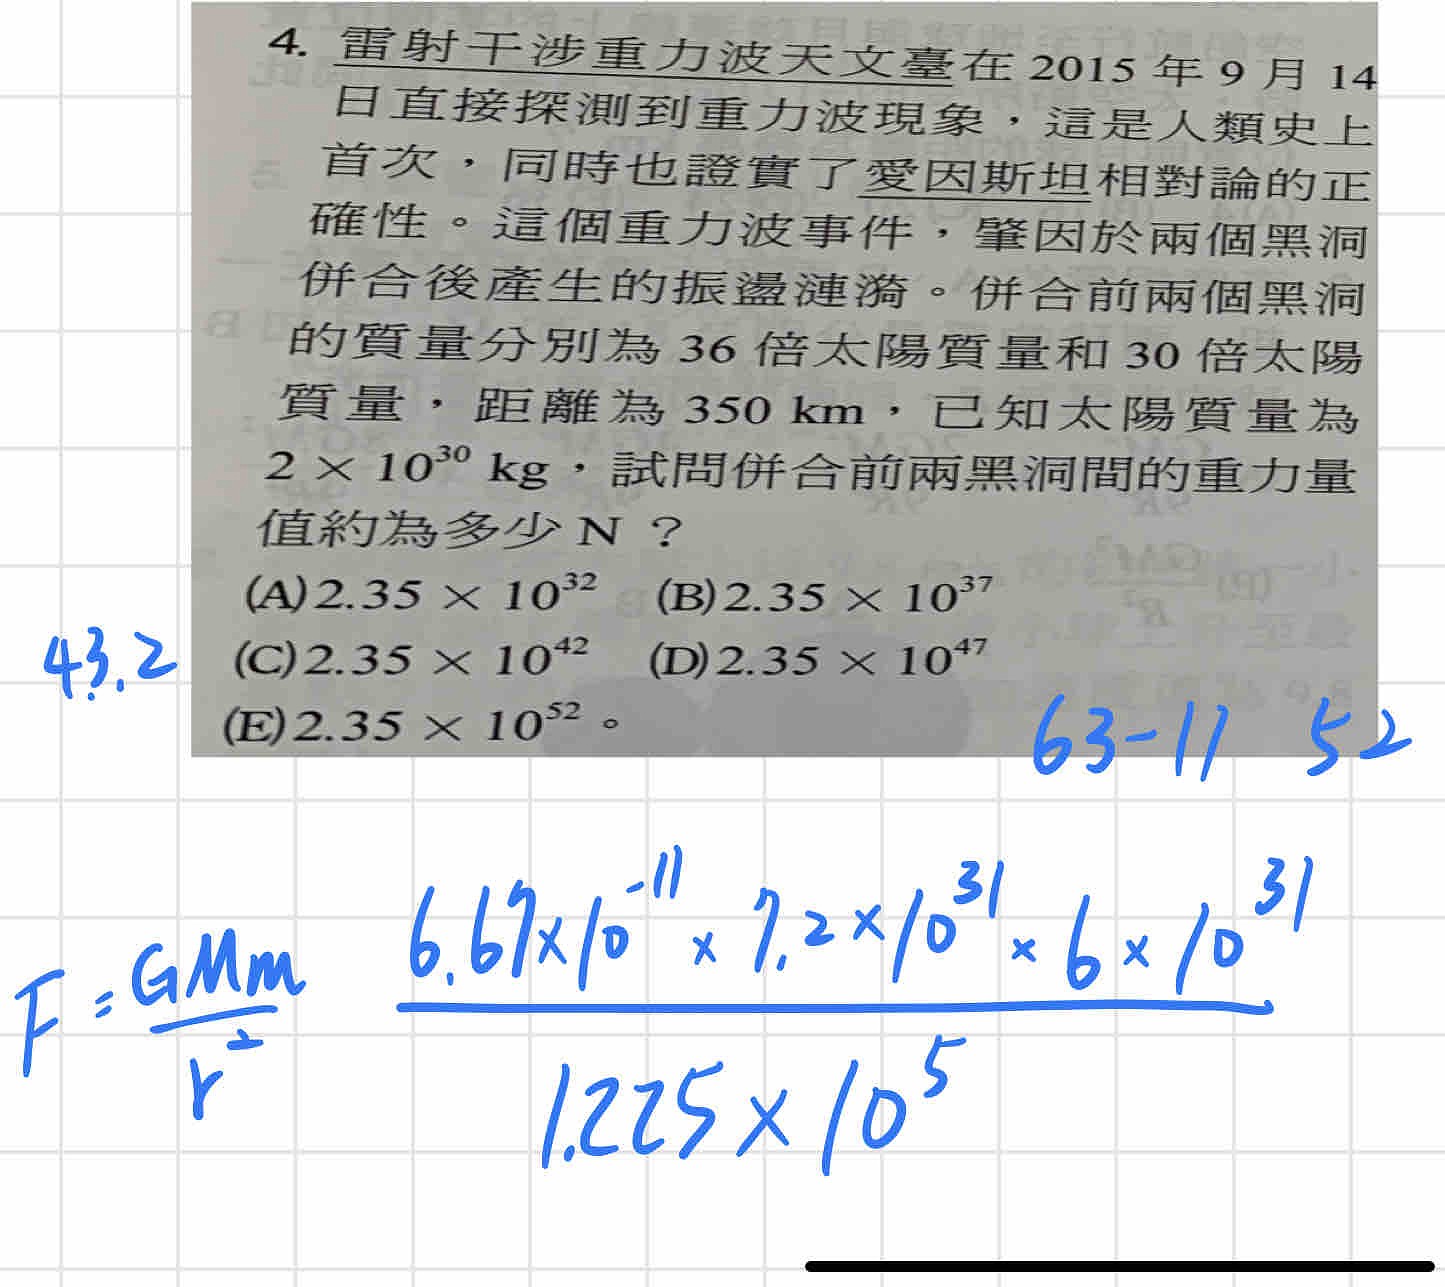 4. 雷射干涉重力波天文臺在 2015 年 9 月 14
日直接探測到重力波現象，這是人類史上
首次，同時也證實了愛因斯坦相對論的正
確性。這個重力波事件，肇因於兩個黑洞
併合後產生的振盪漣漪。併合前兩個黑洞
的質量分別為 36 倍太陽質量和 30 倍太陽
質量，距離為 350 km，已知太陽質量為
2 × 10³⁰ kg，試問併合前兩黑洞間的重力量
值約為多少 N ？
(A) 2.35 × 10³² (B) 2.35 × 10³⁷
(C) 2.35 × 10⁴² (D) 2.35 × 10⁴⁷
(E) 2.35 × 10⁵² 。
43.2
63-11 52
F = GMm / r²
6.67×10⁻¹¹ × 7.2×10³¹ × 6×10³¹
1.225×10⁵